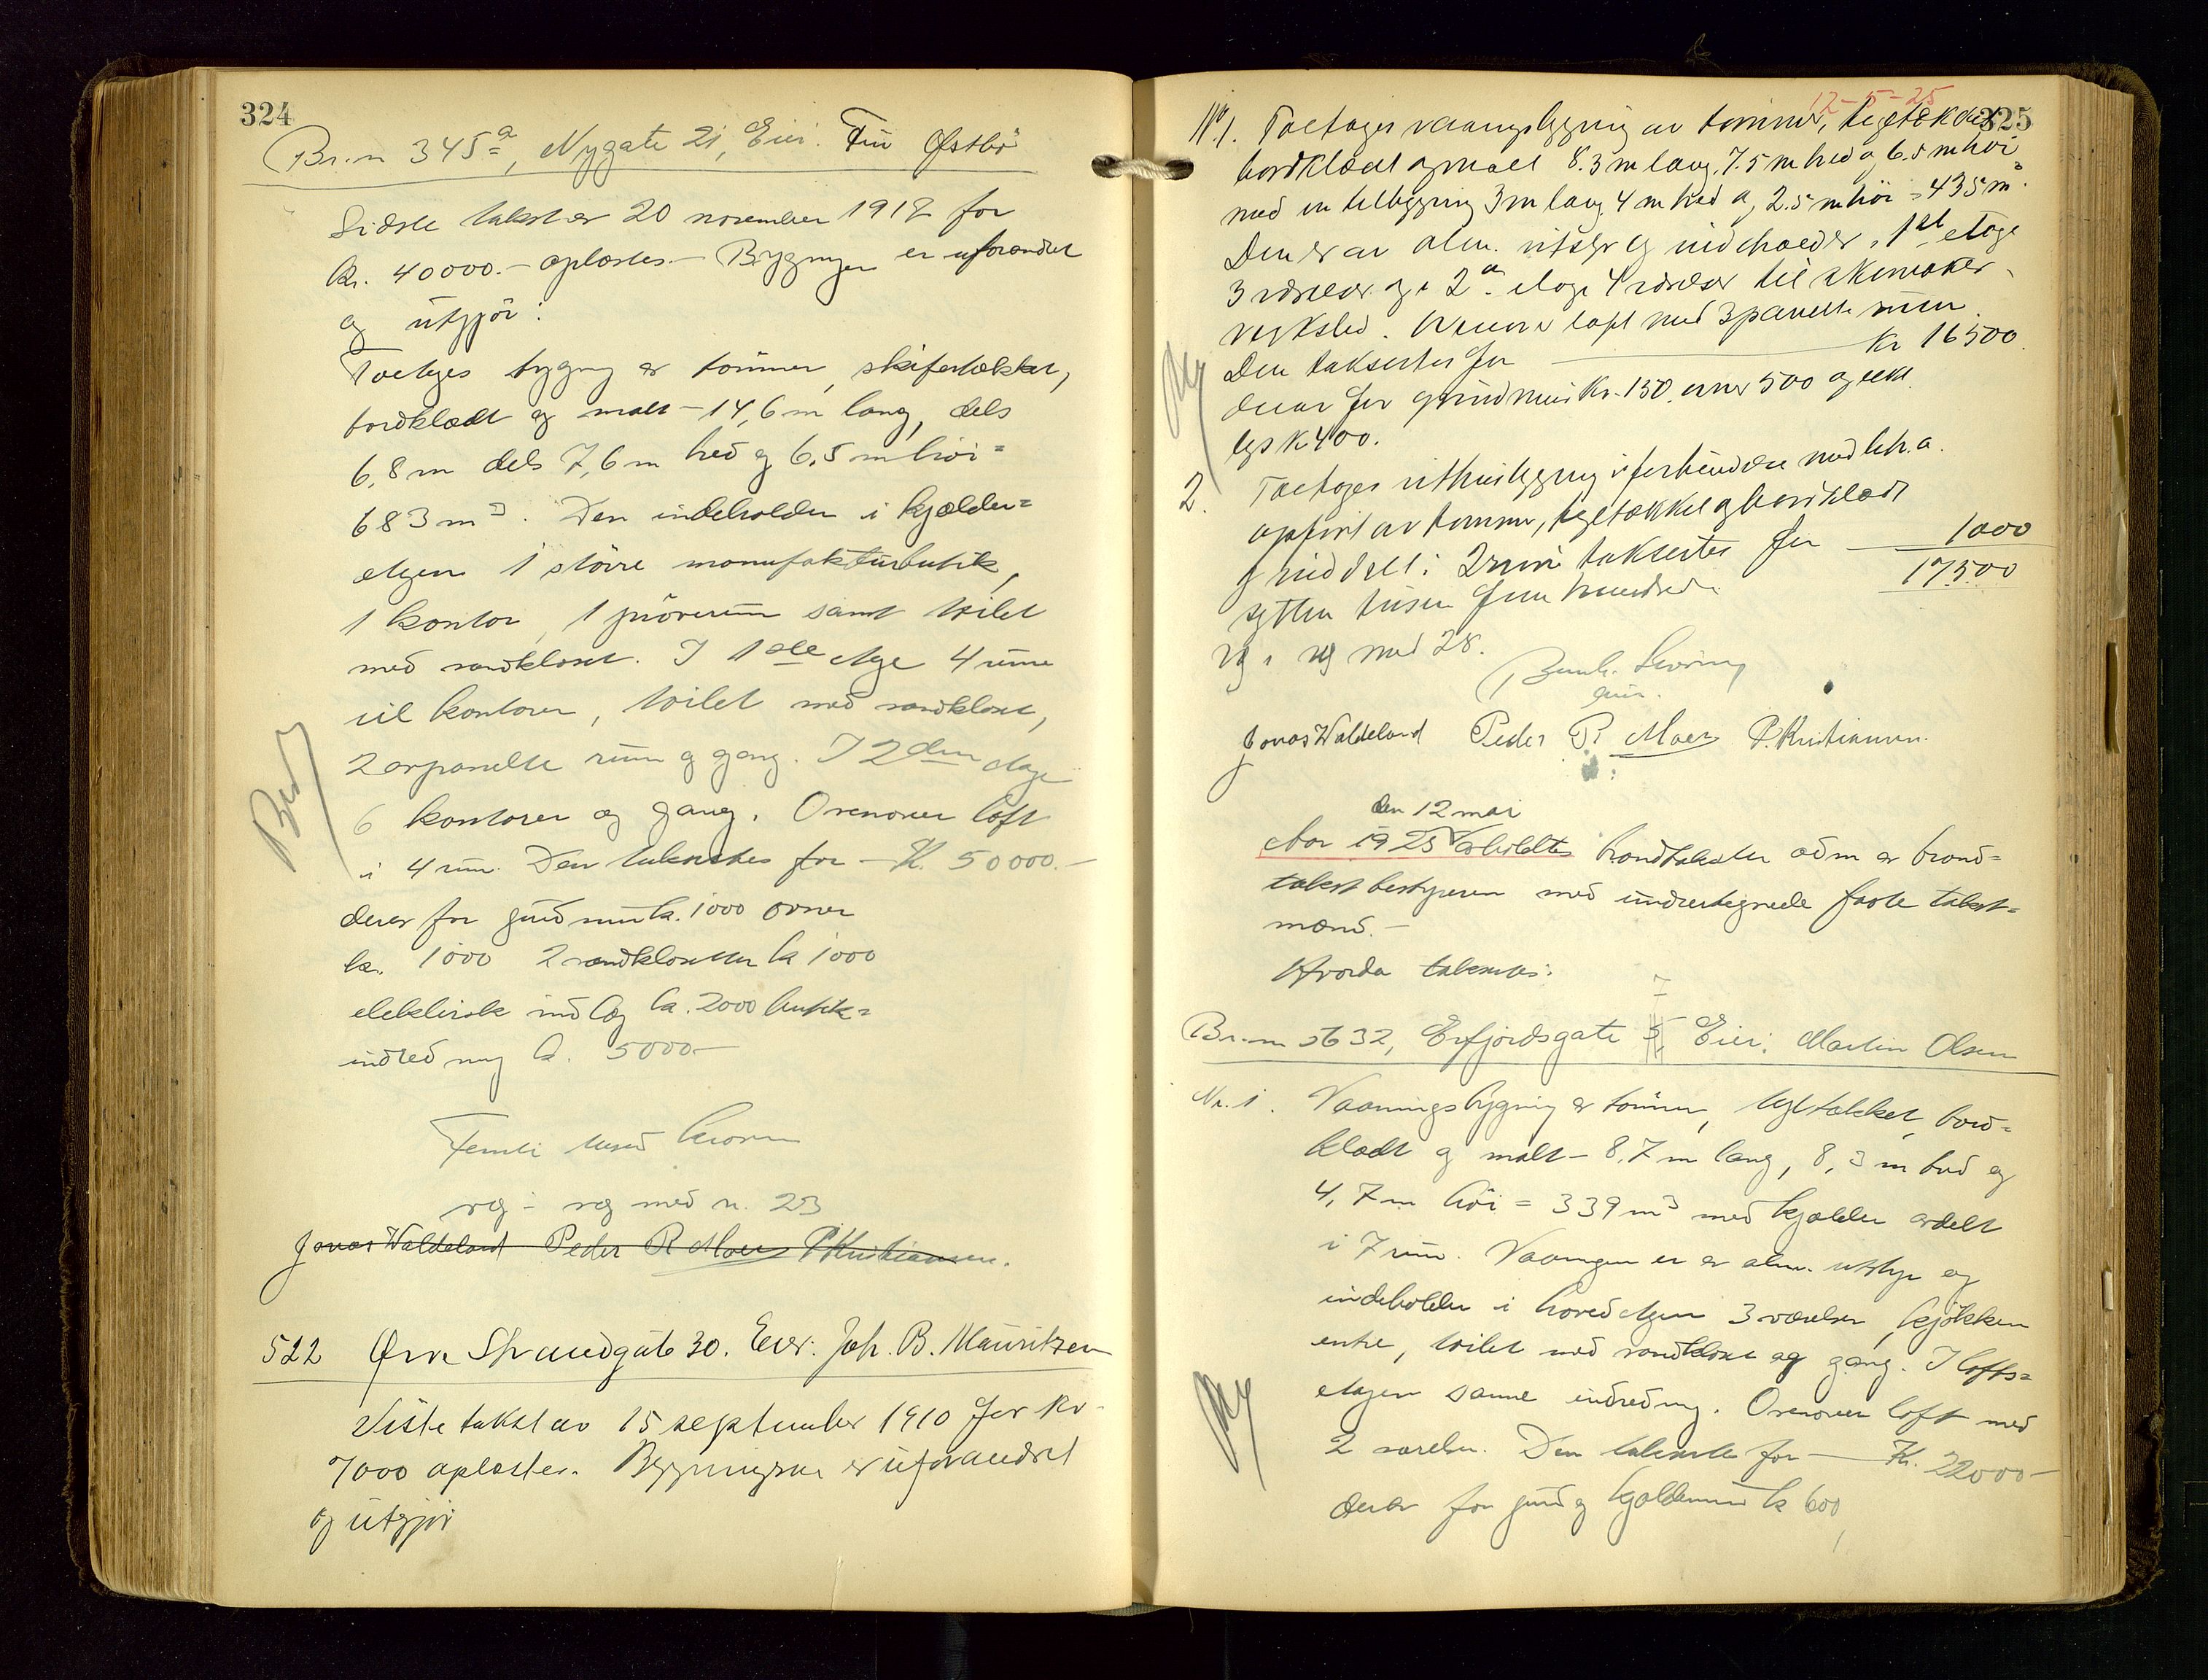 324
Br.n 345a, Nygate 21, Eier: Finn Østbö
Sidste takst av 20 november 1912 for
kr. 40000.- oplæstes.- Bygningen er uforandret
og utgjör:
Toetages bygning av tömmer, skifertækket,
bordklædt og malt - 14,6 m lang, dels
6,8 m dels 7,6 m bred og 6,5 m höi =
683 m3. Den indeholder i kjælder=
etagen 1 större manufakturbutik,
1 kontor, 1 pröverum samt toilet
med vandkloset. I 1ste etage 4 rum
til kontorer, toilet med vandkloset,
2 avpanelte rum og gang. I 2den etage
6 kontorer og gang. Ovenover loft
i 4 rum. Den takseres for - K. 50000.-
derav for grundmur k. 1000 ovner
kr. 1000 2 vandklosetter k 1000
elektrisk indlæg k. 2000 butik=
indredning k. 5000-
Femti tusind kroner
vg i vg med n. 23
Jonas Waldeland Peder R Moer P. Kristiansen.
522 Øvre Strandgate 30. Eier: Joh. B. Mauritzen
Siste takst av 15 september 1910 for kr.
7000 oplæstes. Bygningene er uforandret
og utgjör
12-5-25
325
Nr 1. Toetages vaaningsbygning av tömmer, tegltækket
bordklædt og malt 8.3 m lang, 7.5 m bred og 6.5 m höi
med en tilbygning 3 m lang 4 m bred og 2.5 m höi = 435 m3.
Den er av alm. utstyr og indeholder i 1ste etage
3 værelser og i 2n etage 4 værelser til skomaker-
verksted. Ovenover loft med 3 panelte rum
Den taksertes for kr 16500.
derav for grundmur kr. 150. ovner 500 og elekt.
lys k 400.
2. Toetages uthusbygning i forbindelse med litr. a.
opfört av tömmer, tegltækket og bordklædt
og inddelt i 2 rum takseres for 1000
17500
sytten tusen fem hundrede
vg i vg med 28.
Jonas Waldeland Peder R Moer P. Kristiansen.
den 12 mai
Aar 1925 avholdtes brandtakster adm av brand=
takstbestyreren med undertegnede faste takst=
mænd.-
Hvorda takseres:
7
Br.n 5632, Erfjordsgate 5, Eier: Martin Olsen
Nr. 1. Vaaningsbygning av tömmer, tegltækket, bord=
klædt og malt - 8,7 m lang, 8,3 m bred og
4,7 m höi = 339 m3 med kjælder avdelt
i 7 rum. Vaaningen er av alm. utstyr og
indeholder i hovedetagen 3 værelser, kjökken
entre, toilet med vandkloset og gang. I lofts=
etagen samme indredning. Ovenover loft med
2 værelser. Den takseres for - Kr. 22000-
derav for grund og kjældermur k 600,